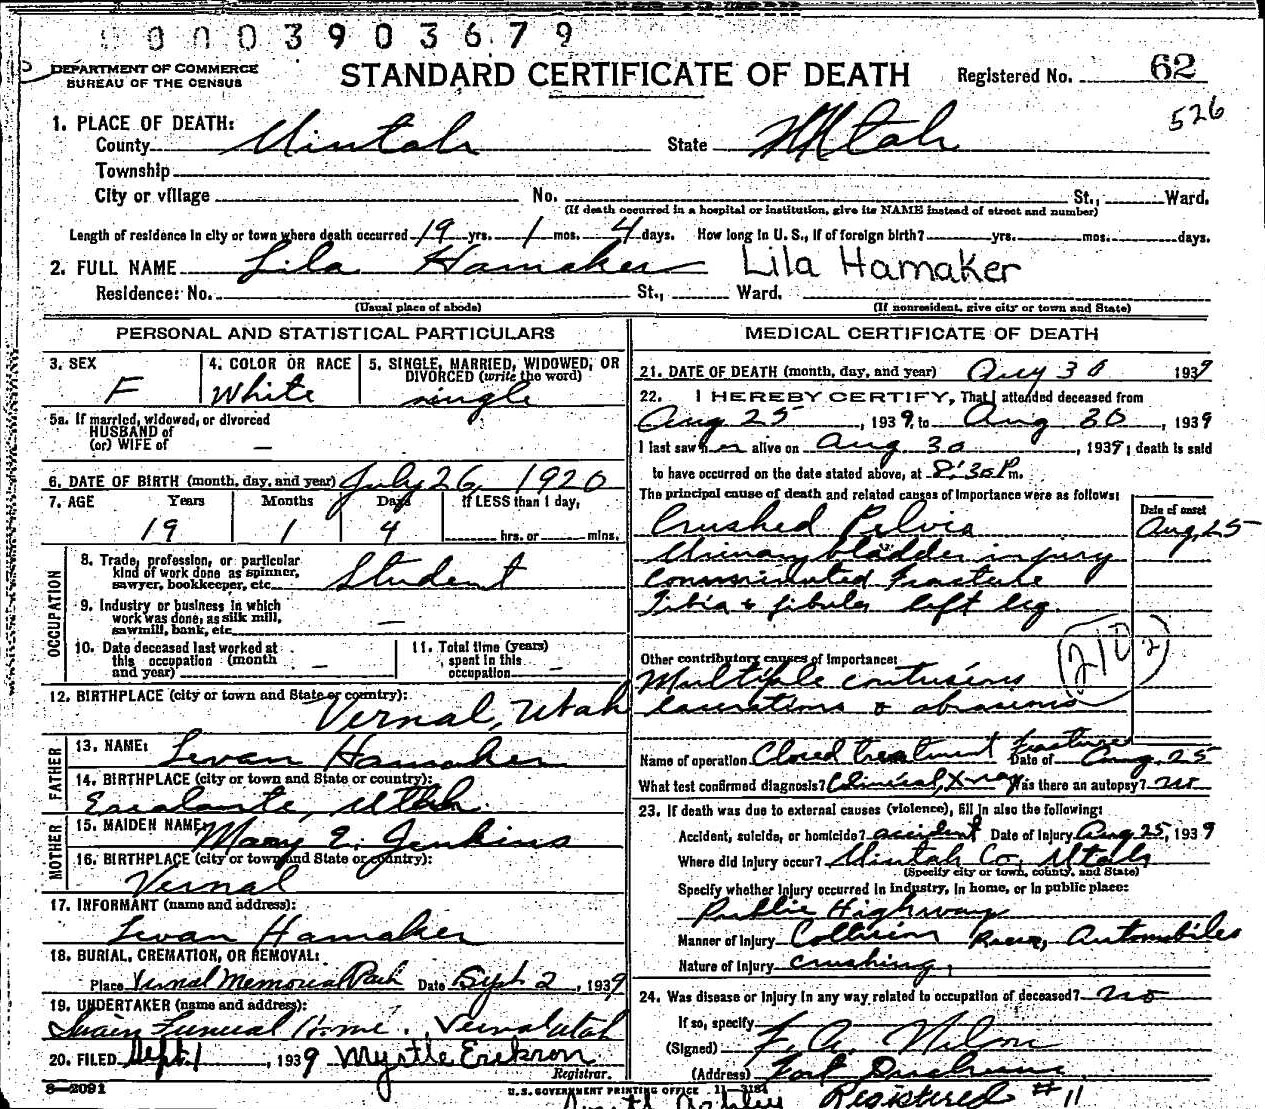 0003903679
DEPARTMENT OF COMMERCE
BUREAU OF THE CENSUS
STANDARD CERTIFICATE OF DEATH
Registered No. 62
526
1. PLACE OF DEATH:
County Uintah State Utah
Township
City or village No. St., Ward.
(If death occurred in a hospital or institution, give its NAME instead of street and number)
Length of residence in city or town where death occurred 19 yrs. 1 mos. 4 days. How long in U. S., if of foreign birth? yrs. mos. days.
2. FULL NAME Lila Hamaker Lila Hamaker
Residence: No. St., Ward.
(Usual place of abode) (If nonresident, give city or town and State)
PERSONAL AND STATISTICAL PARTICULARS
3. SEX F
4. COLOR OR RACE White
5. SINGLE, MARRIED, WIDOWED, OR DIVORCED (write the word) single
5a. If married, widowed, or divorced
HUSBAND of
(or) WIFE of —
6. DATE OF BIRTH (month, day, and year) July 26 1920
7. AGE Years Months Days If LESS than 1 day,
19 1 4 hrs. or mins.
OCCUPATION
8. Trade, profession, or particular
kind of work done as spinner,
sawyer, bookkeeper, etc. Student
9. Industry or business in which
work was done, as silk mill,
sawmill, bank, etc. —
10. Date deceased last worked at
this occupation (month
and year) —
11. Total time (years)
spent in this
occupation —
12. BIRTHPLACE (city or town and State or country):
Vernal, Utah
FATHER
13. NAME: Levan Hamaker
14. BIRTHPLACE (city or town and State or country):
Escalante, Utah.
MOTHER
15. MAIDEN NAME: Mary E. Jenkins
16. BIRTHPLACE (city or town and State or country):
Vernal
17. INFORMANT (name and address):
Levan Hamaker
18. BURIAL, CREMATION, OR REMOVAL:
Place Vernal Memorial Park Date Sept 2, 1939
19. UNDERTAKER (name and address):
Swain Funeral Home. Vernal Utah
20. FILED Sept. 1, 1939 Myrtle Erikson
Registrar.
8—2091
MEDICAL CERTIFICATE OF DEATH
21. DATE OF DEATH (month, day, and year) Aug 30 1939
22. I HEREBY CERTIFY, That I attended deceased from
Aug 25, 1939, to Aug 30, 1939
I last saw her alive on Aug 30, 1939; death is said
to have occurred on the date stated above, at 8:30 P.m.
The principal cause of death and related causes of importance were as follows:
Date of onset
Crushed Pelvis Aug. 25
Urinary bladder injury
Comminuted Fracture
Tibia & fibula left leg
Other contributory causes of importance:
210 2
Multiple contusions
lacerations & abrasions
Name of operation Closed treatment fracture Date of Aug. 25
What test confirmed diagnosis? Clinical, X-ray Was there an autopsy? no
23. If death was due to external causes (violence), fill in also the following:
Accident, suicide, or homicide? accident Date of injury Aug 25, 1939
Where did injury occur? Uintah Co, Utah
(Specify city or town, county, and State)
Specify whether injury occurred in industry, in home, or in public place:
Public Highway
Manner of injury Collision Automobiles
Nature of injury crushing,
24. Was disease or injury in any way related to occupation of deceased? no
If so, specify
(Signed) F. A.
(Address) Fort Duchesne
U.S. GOVERNMENT PRINTING OFFICE 11—3184
Registered #11